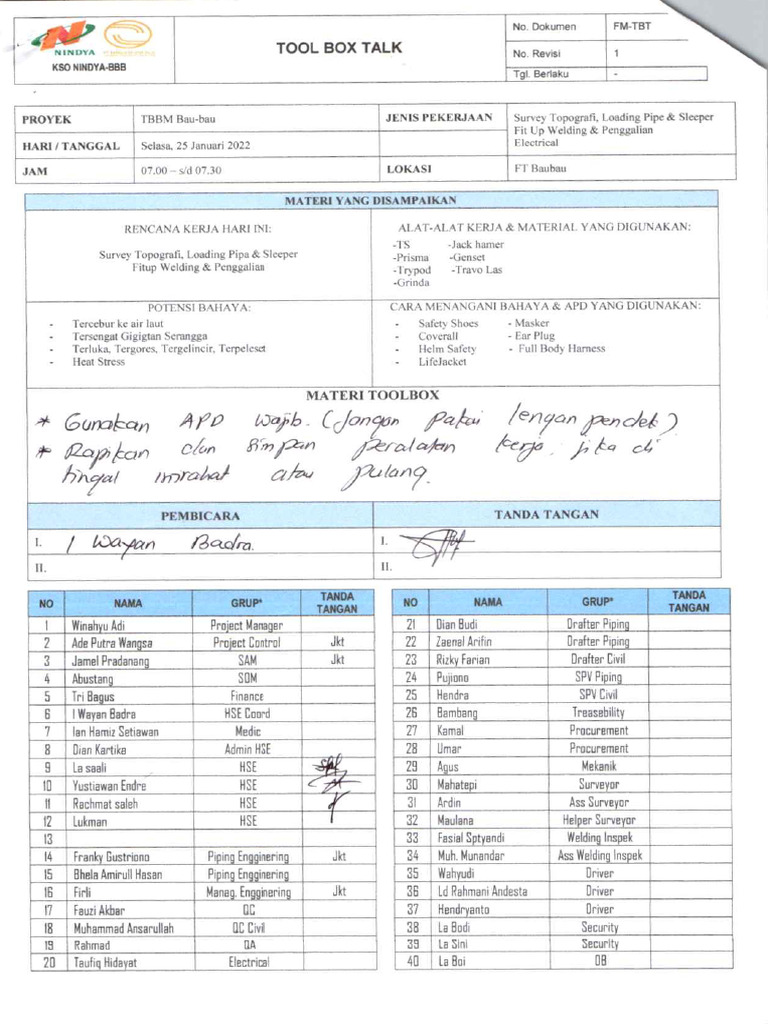 NINDYA
KSO NINDYA-BBB
TOOL BOX TALK
No. Dokumen FM-TBT
No. Revisi 1
Tgl. Berlaku -
PROYEK TBBM Bau-bau JENIS PEKERJAAN Survey Topografi, Loading Pipe & Sleeper
Fit Up Welding & Penggalian
HARI / TANGGAL Selasa, 25 Januari 2022 Electrical
JAM 07.00 – s/d 07.30 LOKASI FT Baubau
MATERI YANG DISAMPAIKAN
RENCANA KERJA HARI INI:
Survey Topografi, Loading Pipa & Sleeper
Fitup Welding & Penggalian
ALAT-ALAT KERJA & MATERIAL YANG DIGUNAKAN:
-TS -Jack hamer
-Prisma -Genset
-Trypod -Travo Las
-Grinda
POTENSI BAHAYA:
- Tercebur ke air laut
- Tersengat Gigigtan Serangga
- Terluka, Tergores, Tergelincir, Terpeleset
- Heat Stress
CARA MENANGANI BAHAYA & APD YANG DIGUNAKAN:
- Safety Shoes - Masker
- Coverall - Ear Plug
- Helm Safety - Full Body Harness
- LifeJacket
MATERI TOOLBOX
* Gunakan APD wajib. (Jangan pakai lengan pendek)
* Rapikan dan simpan peralatan kerja jika di
tingal imrahat atau pulang.
PEMBICARA TANDA TANGAN
I. I Wayan Badra. I.
II. II.
NO NAMA GRUP* TANDA TANGAN
1 Winahyu Adi Project Manager
2 Ade Putra Wangsa Project Control Jkt
3 Jamel Pradanang SAM Jkt
4 Abustang SOM
5 Tri Bagus Finance
6 I Wayan Badra HSE Coord
7 Ian Hamiz Setiawan Medic
8 Dian Kartika Admin HSE
9 La saali HSE
10 Yustiawan Endre HSE
11 Rachmat saleh HSE
12 Lukman HSE
13
14 Franky Gustriono Piping Engginering Jkt
15 Bhela Amirull Hasan Piping Engginering
16 Firli Manag. Engginering Jkt
17 Fauzi Akbar QC
18 Muhammad Ansarullah QC Civil
19 Rahmad QA
20 Taufiq Hidayat Electrical
NO NAMA GRUP* TANDA TANGAN
21 Dian Budi Drafter Piping
22 Zaenal Arifin Drafter Piping
23 Rizky Farian Drafter Civil
24 Pujiono SPV Piping
25 Hendra SPV Civil
26 Bambang Treasebility
27 Kamal Procurement
28 Umar Procurement
29 Agus Mekanik
30 Mahatepi Surveyor
31 Ardin Ass Surveyor
32 Maulana Helper Surveyor
33 Fasial Sptyandi Welding Inspek
34 Muh. Munandar Ass Welding Inspek
35 Wahyudi Driver
36 Ld Rahmani Andesta Driver
37 Hendryanto Driver
38 La Bodi Security
39 La Sini Security
40 La Boi OB